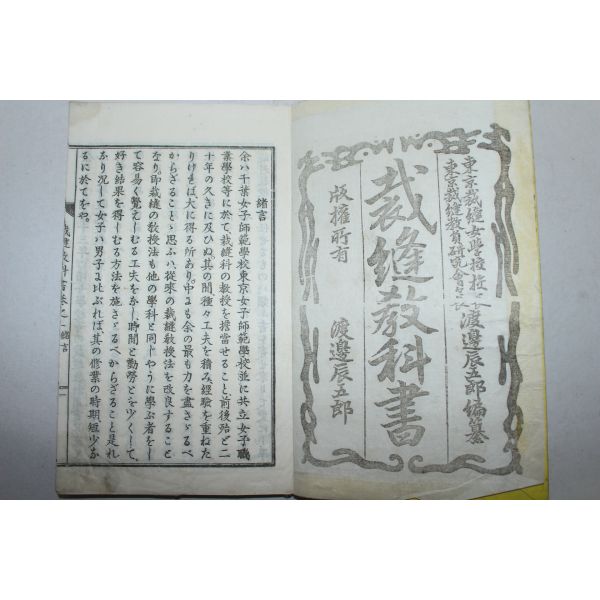 東京裁縫女學校校長
東京裁縫教員研究會會長
渡邊辰五郎編纂
裁縫教科書
版權所有
渡邊辰五郎
緒言
余ハ千葉女子師範學校東京女子師範學校並に共立女子職
業學校等に於て裁縫科の教授を擔當せること前後殆ど二
十年の久きに及ひぬ其の間種々工夫を積み經驗を重ねた
りけれバ大に得る所あり。中にも余の最も力を盡さゞるべ
からざることゝ思ふハ從來の裁縫教授法を改良すること
なり。即裁縫の教授法も他の學科と同しやうに學ぶ者をし
て容易く覺えしむる工夫をなし、時間と勤勞とを少くして
好き結果を得しむる方法を施さゞるべからざること是れ
なり况して女子ハ男子に比ぶれば、其の修業の時期、短少な
るに於てをや。
裁縫教科書卷之一 緒言
一